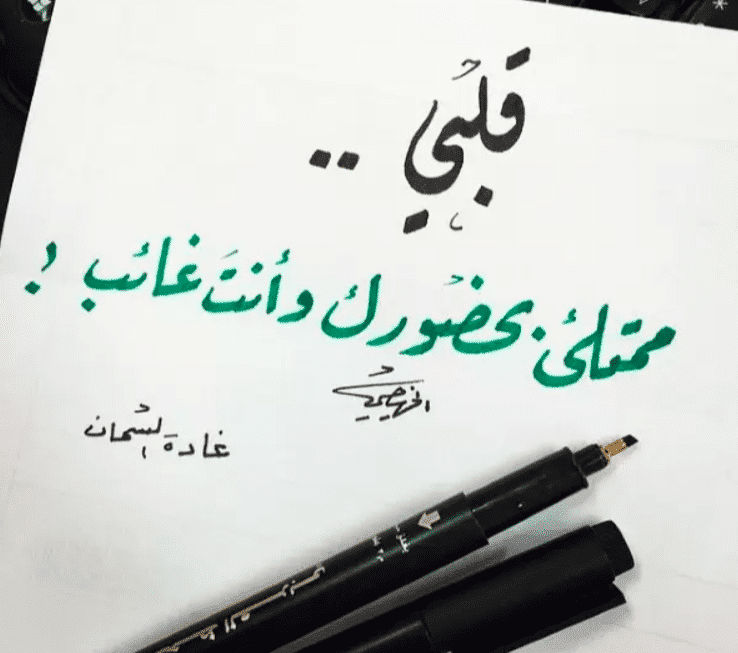 قلبي ..
ممتلئ بحضورك وأنتَ غائب !
غادة السمان